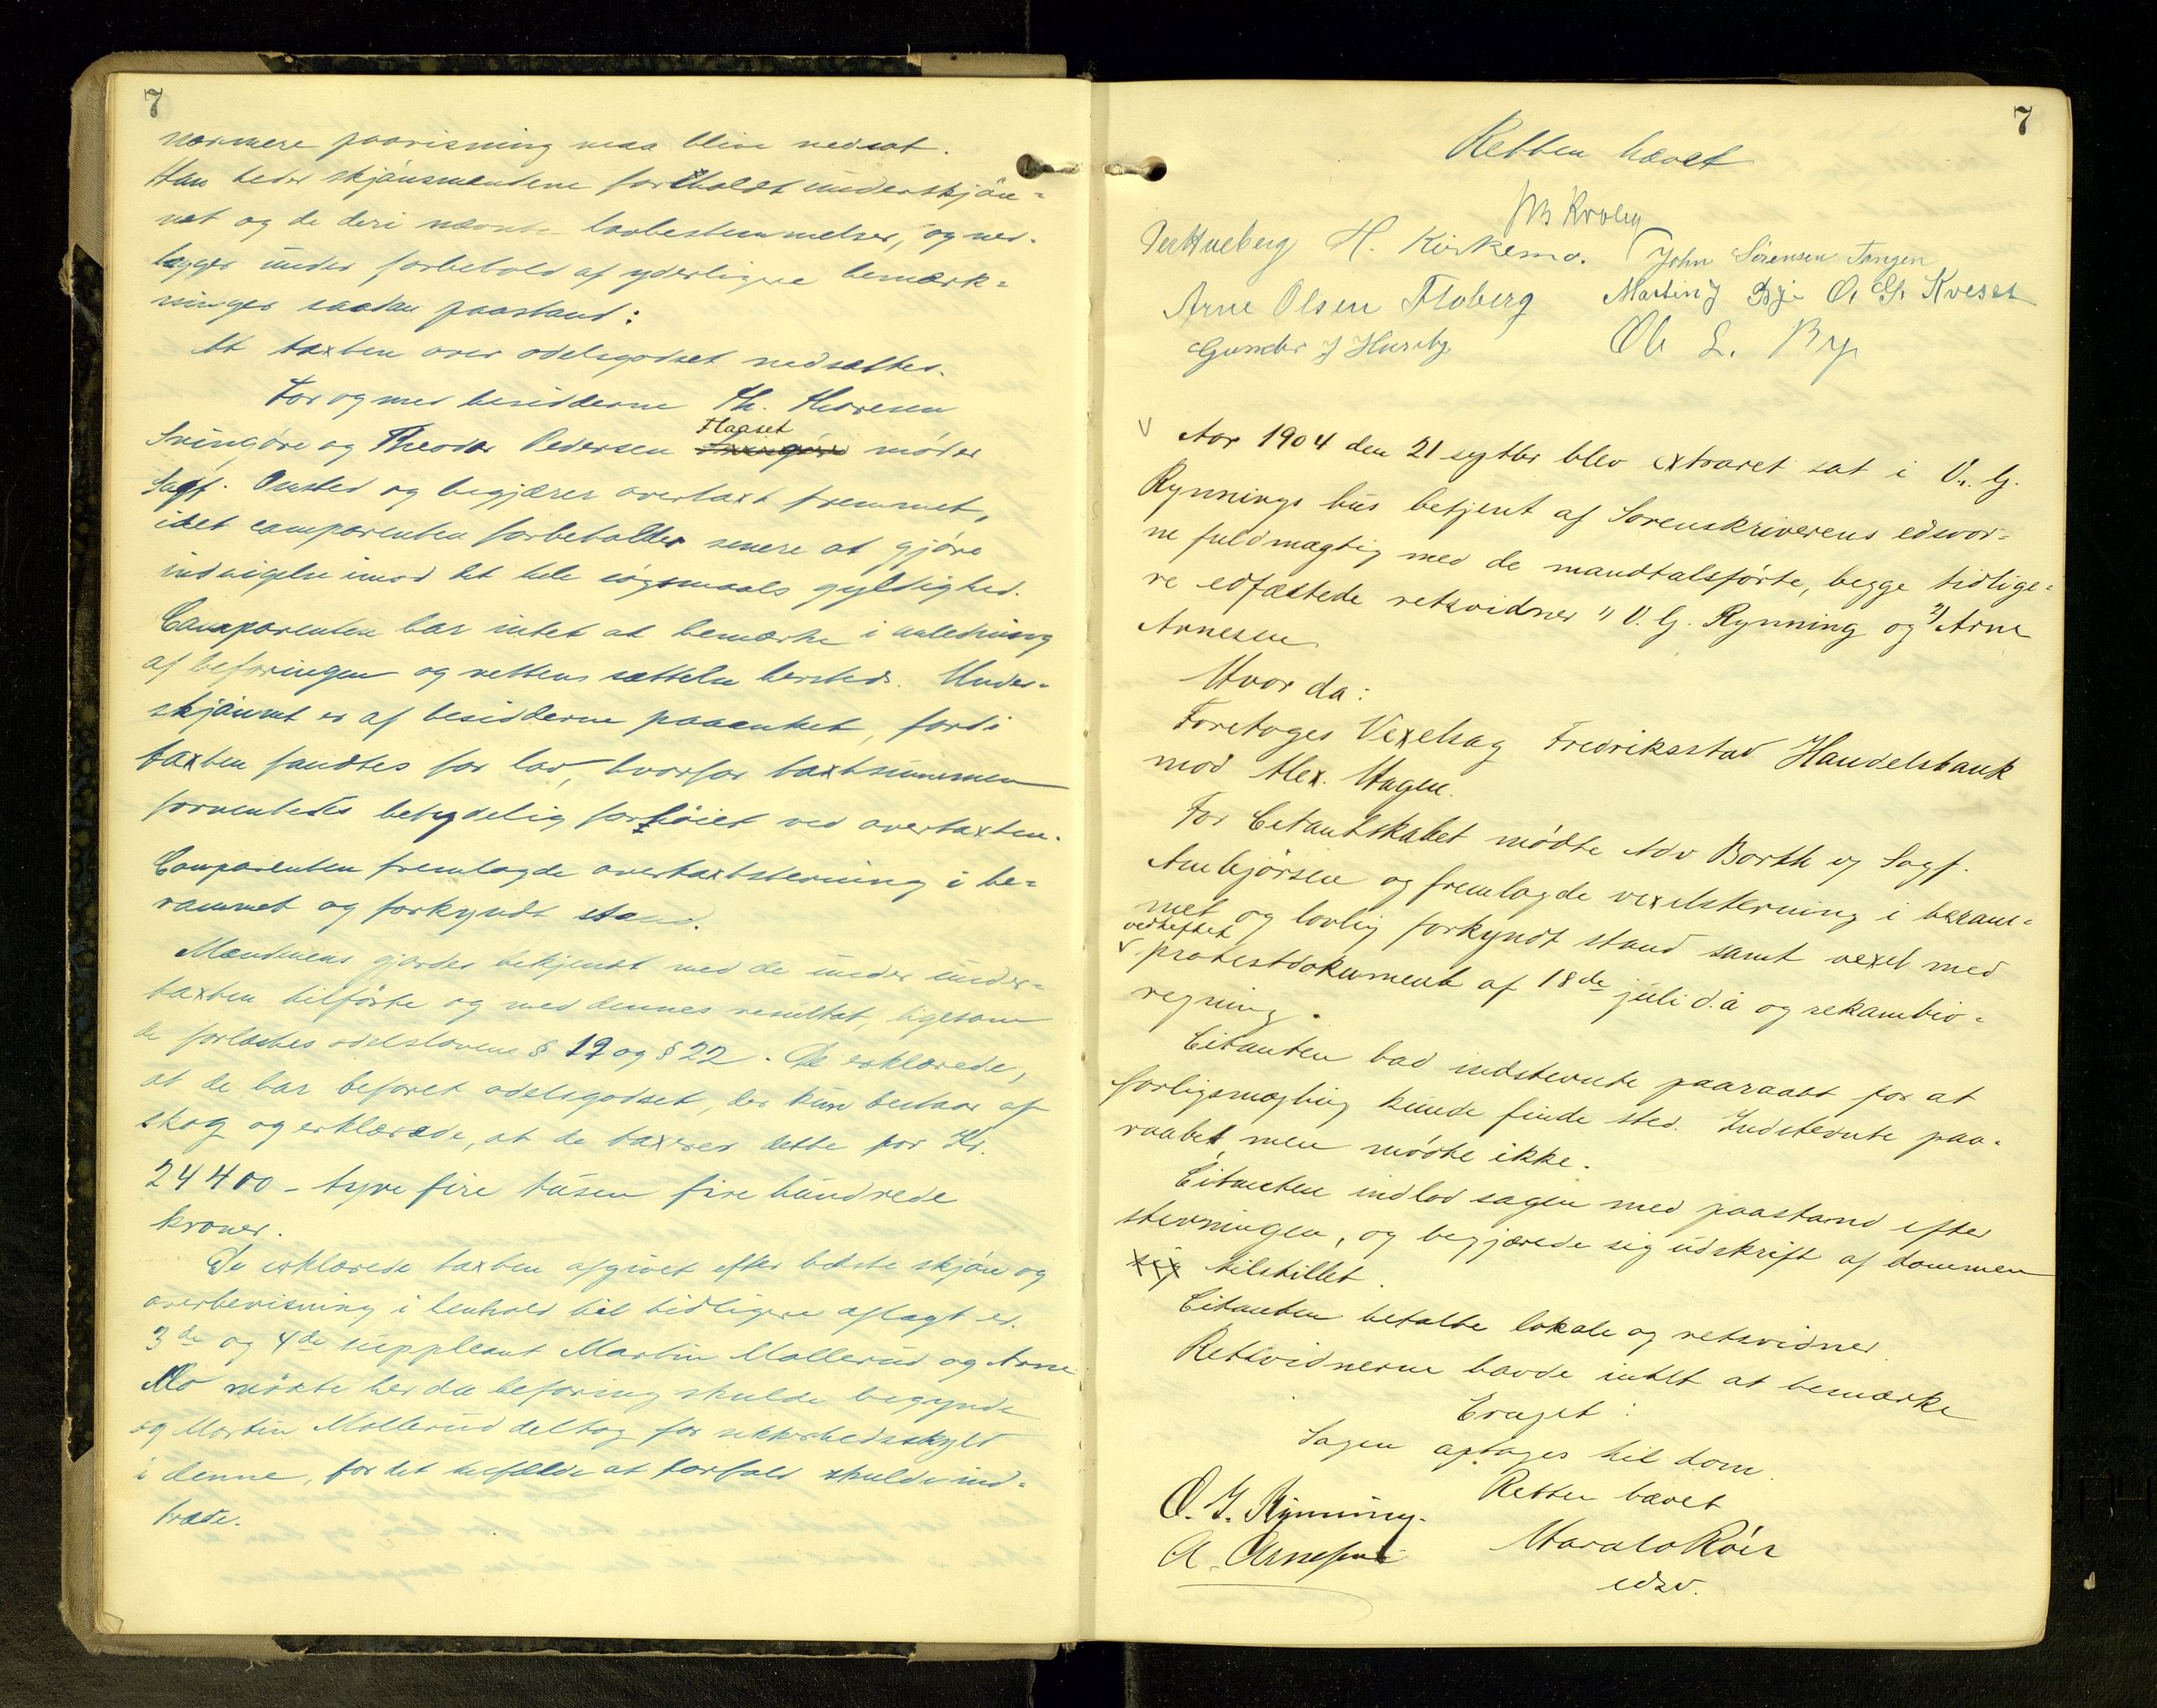 7
nærmere paavisning maa blive nedsat.
Han beder skjønsmændene forholdt underskjøn-
net og de deri nævnte lovbestemmelser, og ned-
lægger under forbehold af yderligere bemærk-
ninger saadan paastand:
At taxten over odelsgodset nedsættes.
For og med besidderne Th. Thoresen
Svingøre og Theodor Pedersen Flaaset møder
Sagf. Onsted og begjærer overtaxt fremmet,
idet comparenten forbeholder senere at gjøre
indsigelse imod det hele søgsmaals gyldighed.
Comparenten har intet at bemærke i anledning
af befaringen og rettens sættelse hersteds. Under-
skjønnet er af besidderne paaanket, fordi
taxten fandtes for lav, hvorfor taxtsummen
forventedes betydelig forhøiet ved overtaxten.
Comparenten fremlagde overtaxtstevning i be-
rammet og forkyndt stand.
Mændenene gjordes bekjendt med de under under-
taxten tilførte og med dennes resultat, ligesom
de forlæstes odelslovens § 19 og § 22. De erklærede,
at de har befaret odelsgodset, der kun bestaar af
skog og erklærede, at de taxerer dette for Kr.
24400 - tyve fire tusen fire hundrede
kroner.
De erklærede taxten afgivet efter bedste skjøn og
overbevisning i henhold til tidligere aflagt ed.
3de og 4de suppleant Martin Mollerud og Arne
Mo mødte her da befaring skulde begynde
og Martin Mollerud deltog for sikkerhedsskyld
i denne, for det tilfælde at forfald skulde ind-
træde.
7
Retten hævet
Kirkemo. John Sørensen Tangen
Arne Olsen Floberg Martin J Bye O. G. Kveset
Gunder J Huseby Ole L. By
Aar 1904 den 21 septbr blev extraret sat i O. G.
Rynnings hus betjent af Sorenskriverens edsvor-
ne fuldmægtig med de mandtalsførte, begge tidlige-
re edfæstede retsvidner 1) O. G. Rynning og 2) Arne
Arnesen
Hvor da:
Foretoges Vexelsag Fredriksstad Handelsbank
mod Alex. Hagen.
For Citantskabet mødte Adv Barth og Sagf.
Arnbjørsen og fremlagde vexelstevning i beram-
met og lovlig forkyndt stand samt vexel med
vedheftet
v protestdokument af 18de juli d.å og rekambio-
regning.
Citanten bad indstevnte paaraabt for at
forligsmægling kunde finde sted. Indstevnte paa-
raabt, men mødte ikke.
Citanten indlod sagen med paastand efter
stevningen, og begjærede sig udskrift af dommen
tilstillet.
Citanten betalte lokale og retsvidner
Retsvidnerne havde intet at bemærke
Eragtet:
Sagen optages til dom.
Retten hævet
O. G. Rynning.
A. Arnesen
Harald Röer
edsv.